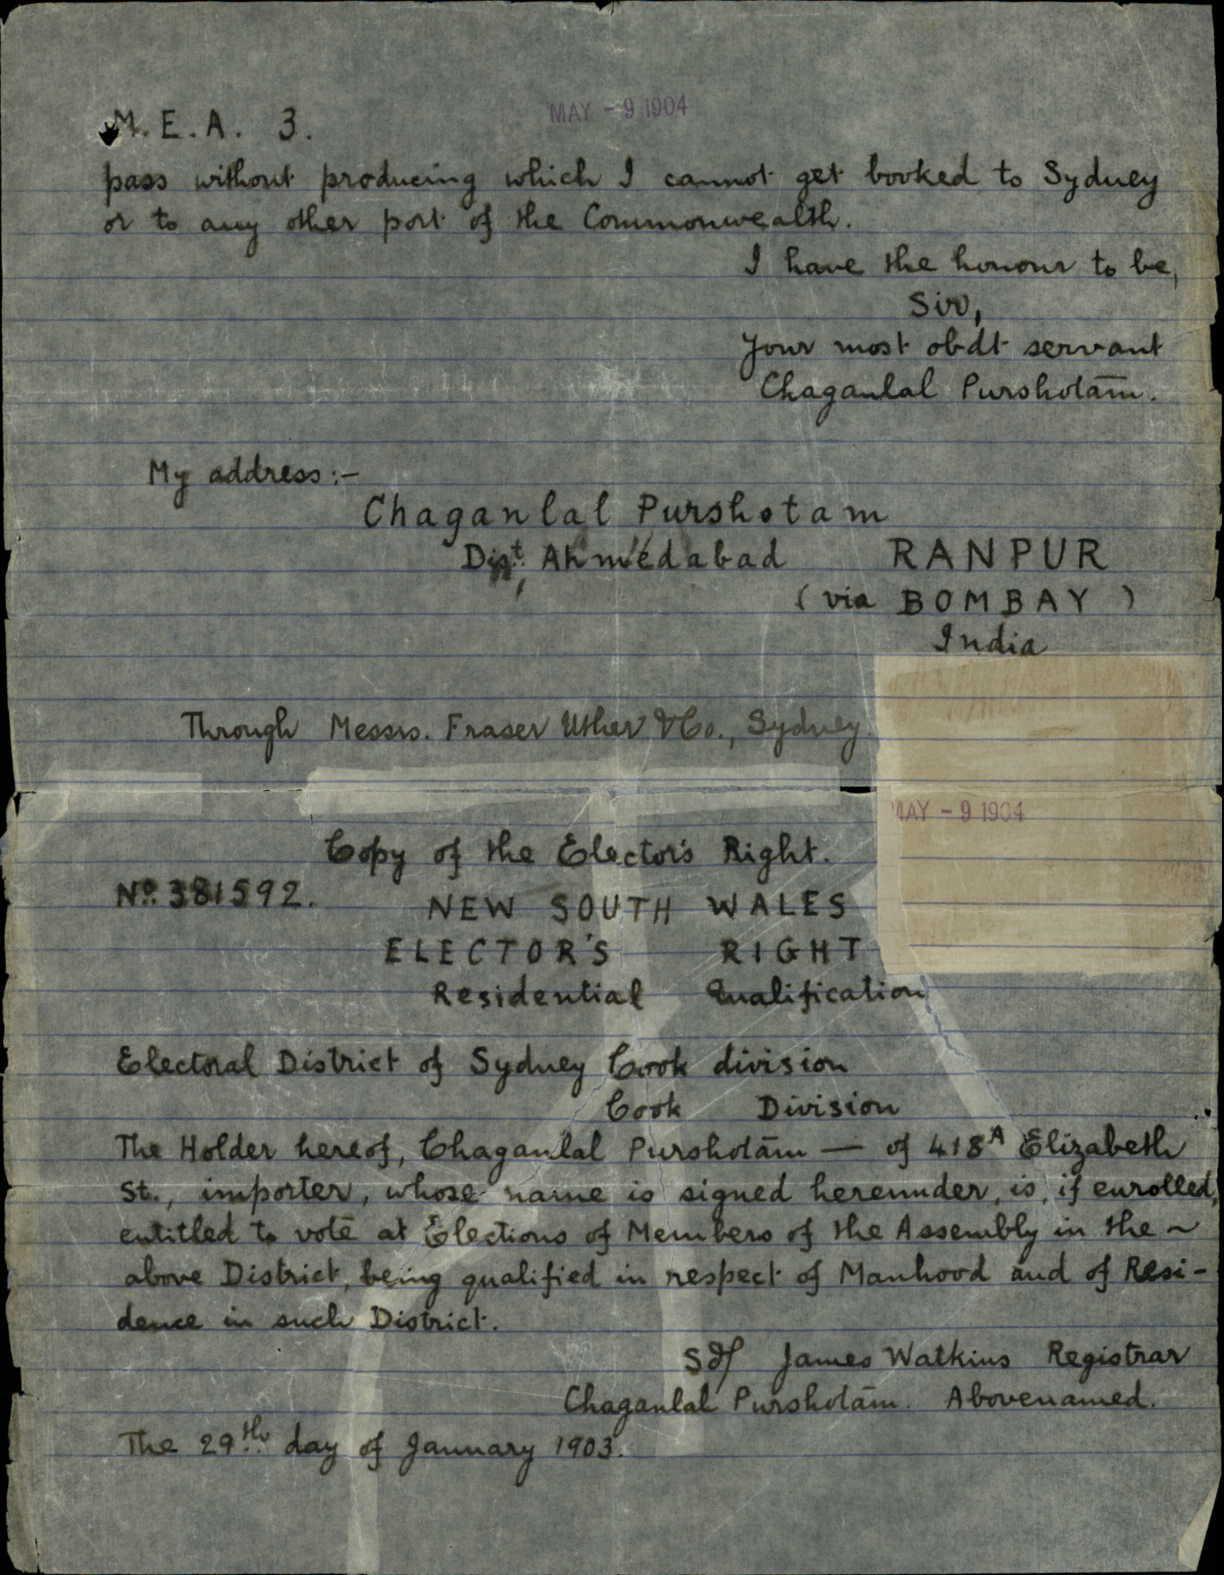 MAY - 9 1904
M. E. A. 3.
pass without producing which I cannot get booked to Sydney
or to any other port of the Commonwealth.
I have the honour to be,
Sir,
Your most obdt servant
Chaganlal Purshotām.
My address:-
Chaganlal Purshotam
Dist. Ahmedabad RANPUR
(via BOMBAY)
India
Through Messrs. Fraser Uther & Co., Sydney.
MAY - 9 1904
Copy of the Elector's Right.
No. 381592.
NEW SOUTH WALES
ELECTOR'S RIGHT
Residential Qualification
Electoral District of Sydney Cook division
Cook Division
The Holder hereof, Chaganlal Purshotām — of 418A Elizabeth
St., importer, whose name is signed hereunder, is, if enrolled,
entitled to vote at Elections of Members of the Assembly in the ~
above District, being qualified in respect of Manhood and of Resi-
dence in such District.
Sd/ James Watkins Registrar
Chaganlal Purshotām. Abovenamed.
The 29th day of January 1903.